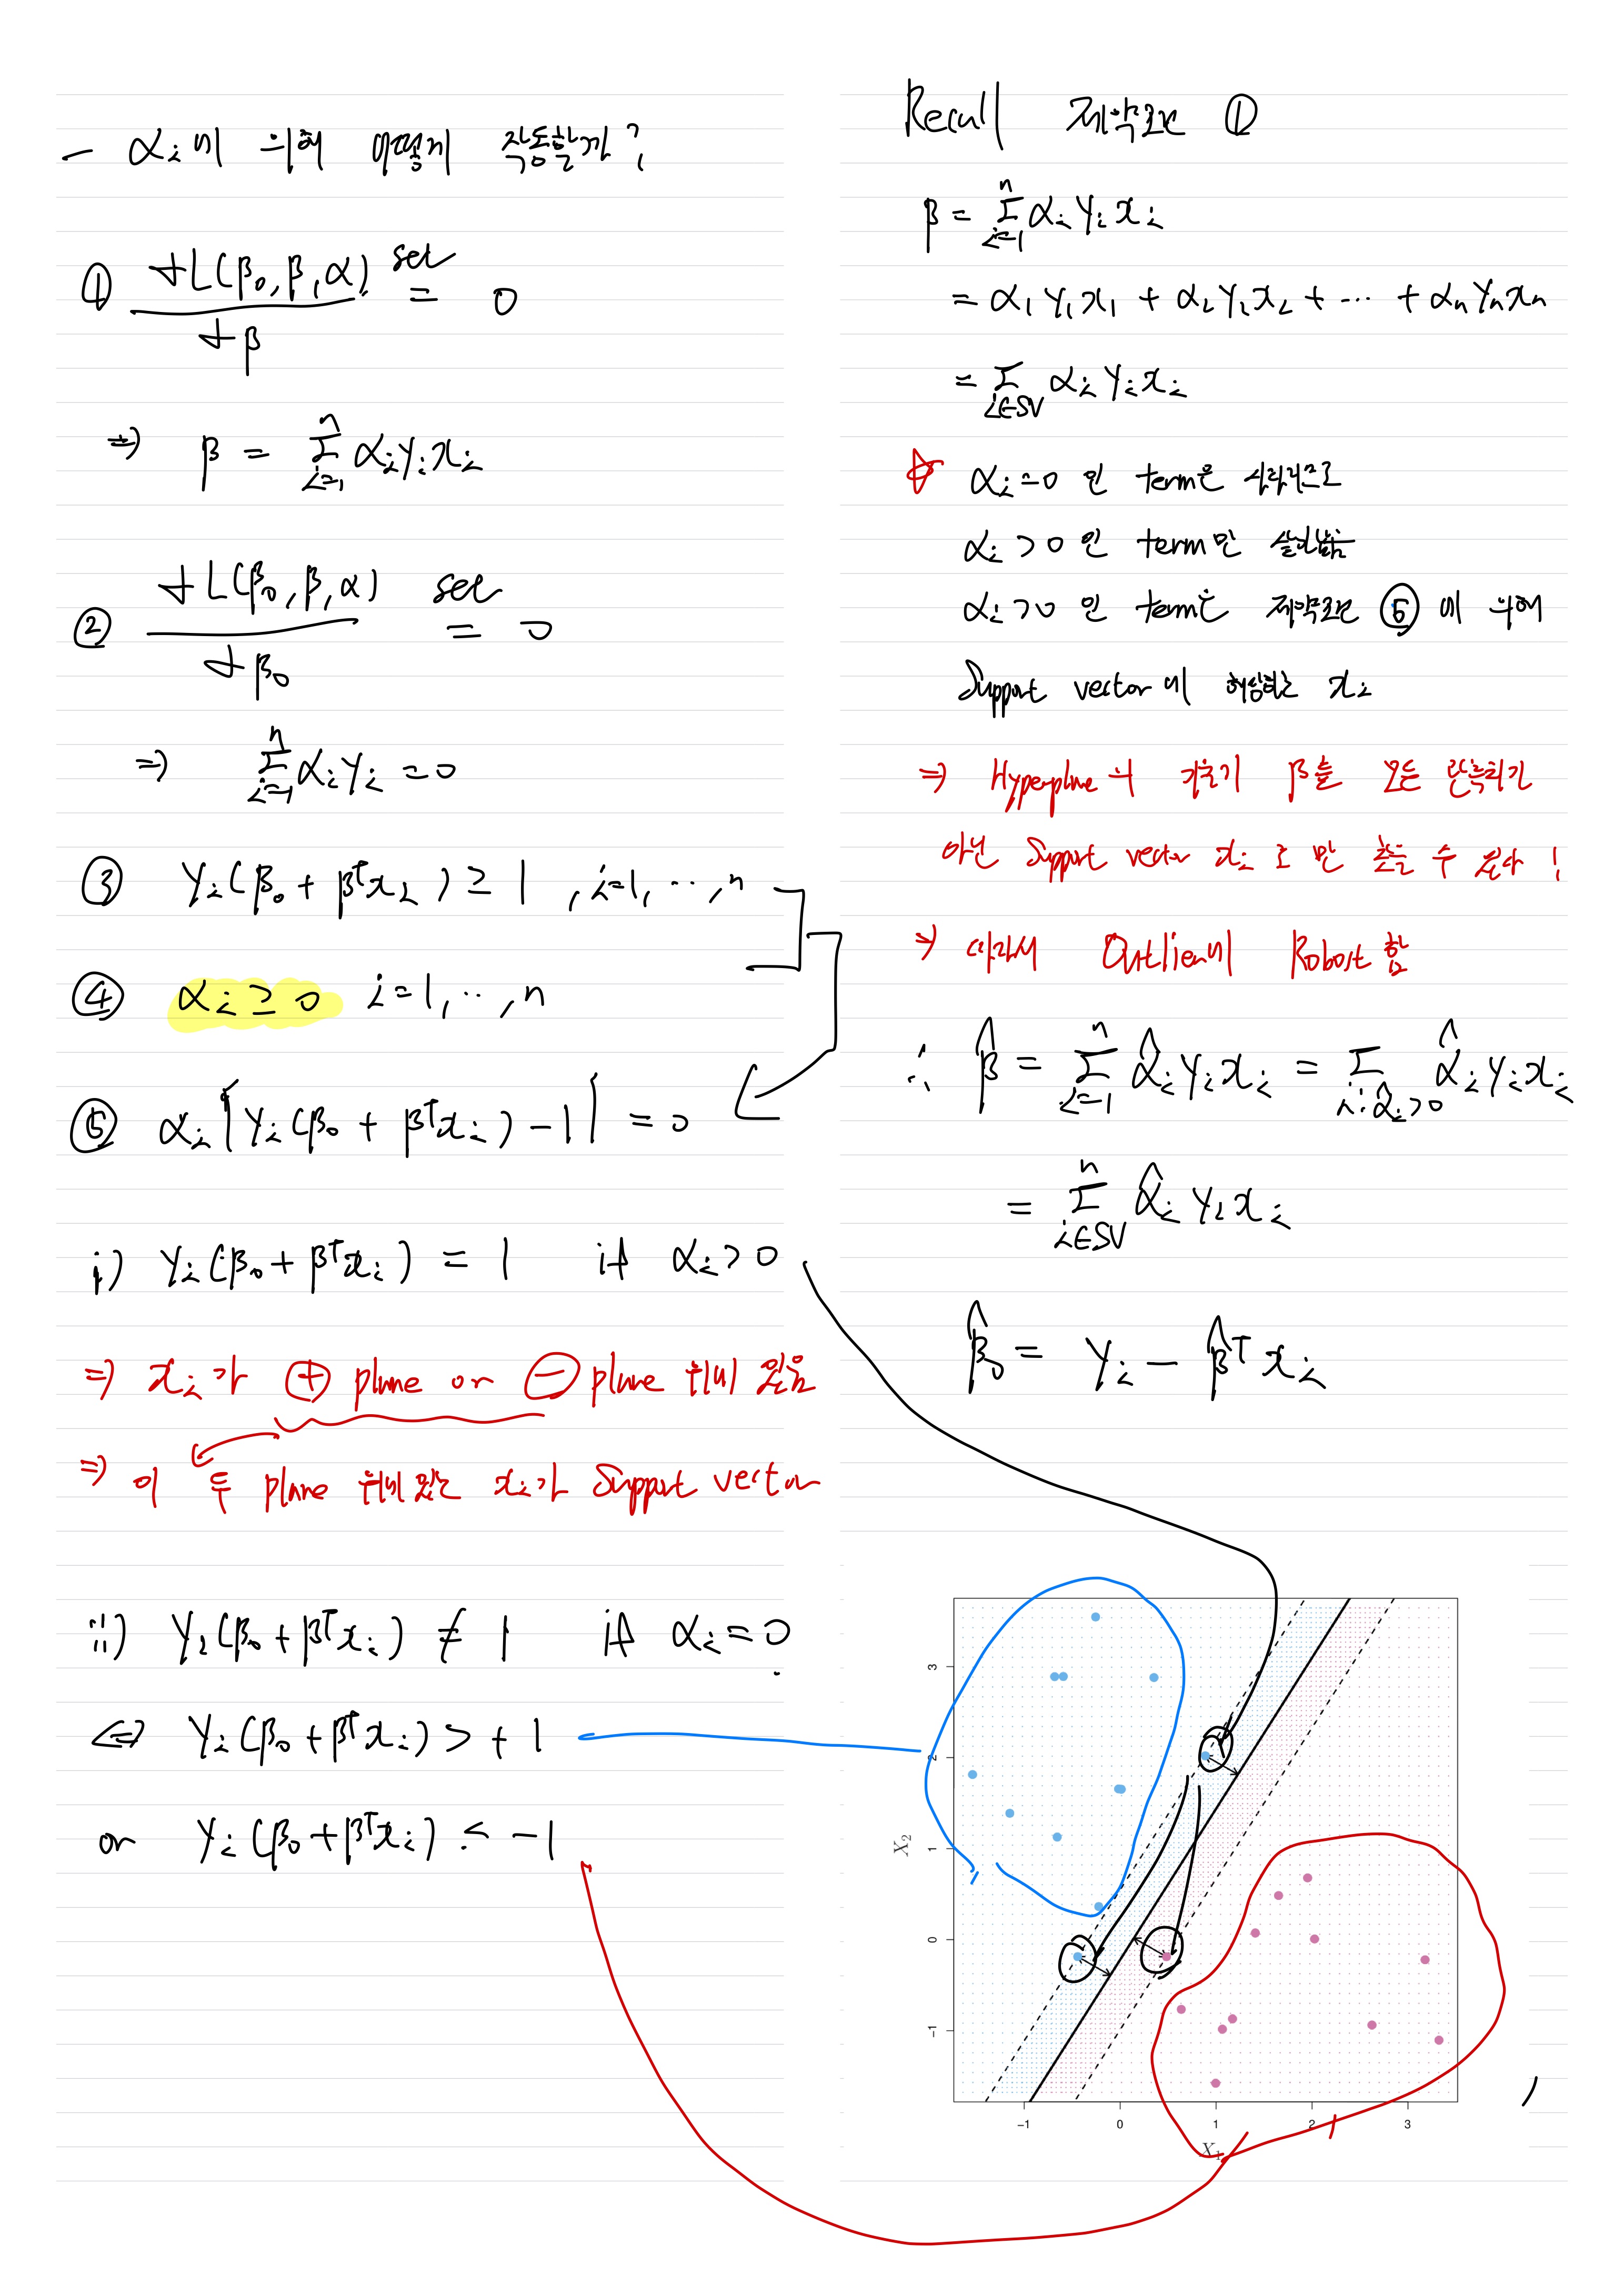 - αi에 의해 어떻게 작동할까?
① dL(β0, β, α) / dβ set = 0
⇒ β = Σ_{i=1}^{n} αi yi xi
② dL(β0, β, α) / dβ0 set = 0
⇒ Σ_{i=1}^{n} αi yi = 0
③ yi(β0 + βᵀxi) ≥ 1 , i=1, ..., n
④ αi ≥ 0 i=1, .., n
⑤ αi {yi(β0 + βᵀxi) - 1} = 0
i) yi(β0 + βᵀxi) = 1 if αi > 0
⇒ xi가 ⊕ plane or ⊖ plane 위에 있음
⇒ 이 두 plane 위에 있는 xi가 Support vector
ii) yi(β0 + βᵀxi) ≠ 1 if αi = 0
⇔ yi(β0 + βᵀxi) > +1
or yi(β0 + βᵀxi) < -1
Recall 제약조건 ①
β = Σ_{i=1}^{n} αi yi xi
= α1 y1 x1 + α2 y2 x2 + ... + αn yn xn
= Σ_{i∈SV} αi yi xi
☆ αi = 0 인 term은 사라지므로
αi > 0 인 term만 살아남음
αi > 0 인 term은 제약조건 ⑤ 에 의해
Support vector에 해당하는 xi
⇒ Hyperplane의 기울기 β를 모든 관측치가
아닌 Support vector xi로만 찾을 수 있다!
⇒ 따라서 Outlier에 Robost 함
∴ β̂ = Σ_{i=1}^{n} α̂i yi xi = Σ_{i: α̂i>0} α̂i yi xi
= Σ_{i∈SV}^{n} α̂i yi xi
β̂0 = yi - β̂ᵀxi
3
2
1
0
-1
X2
-1 0 1 2 3
X1